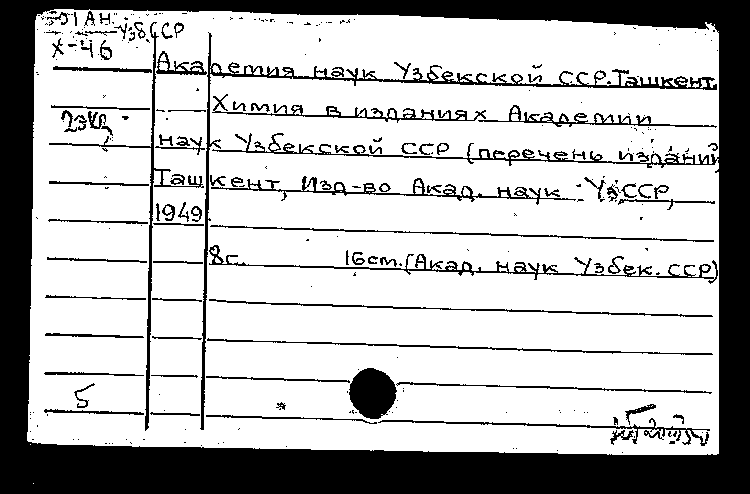 01 АН УзбССР
Х-46
Академия наук Узбекской ССР. Ташкент.
Химия в изданиях Академии
наук Узбекской ССР (перечень изданий
Ташкент, Изд-во Акад. наук УзССР,
1949
8с. 16см. (Акад. наук Узбек. ССР)
5